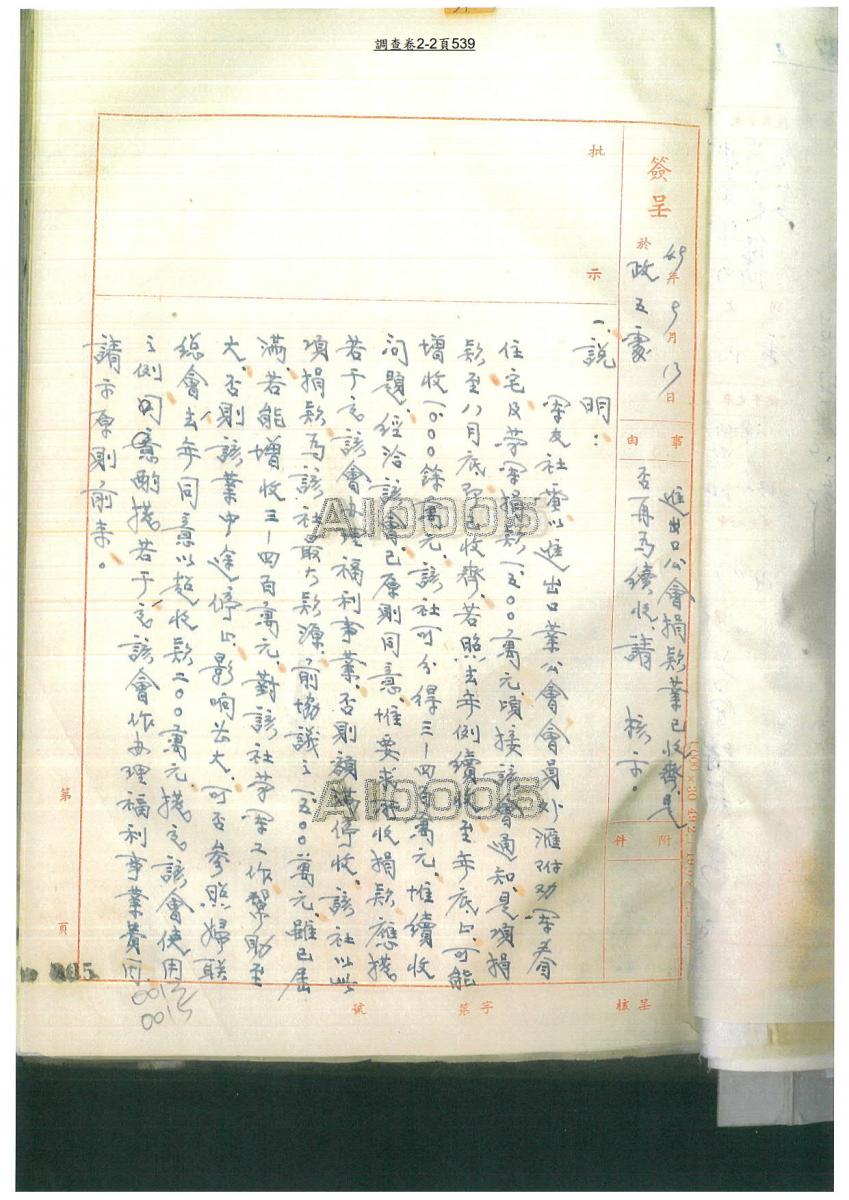 調查卷2-2頁539
簽呈
於政五處
49年9月13日
事由
進出口公會捐款業已收齊,是
否再為續收,請 核示。
附件
批示
一、說明:
軍友社電以進出口業公會會員外滙附勸軍眷
住宅及勞軍捐款一、五〇〇萬元,頃接該會通知,是項捐
款至八月底即已收齊,若照去年例續收至年底止,可能
增收一、〇〇〇餘萬元,該社可分得三-四百萬元,惟續收
問題,經洽該會已原則同意,惟要求續收捐款應撥
若干予該會辦理福利事業,否則額滿停收,該社以此
項捐款為該社最大款源,前協議之一、五〇〇萬元,雖已屆
滿,若能增收三-四百萬元,對該社勞軍工作幫助至
大,否則該業中途停止,影响甚大,可否參照婦聯
總會去年同意以超收款二〇〇萬元撥予該會使用
之例同意酌撥若干予該會作办理福利事業費用,
請示原則前來。
第 頁
呈核
字第 號
AI0005
AI0005
005
0012
0015